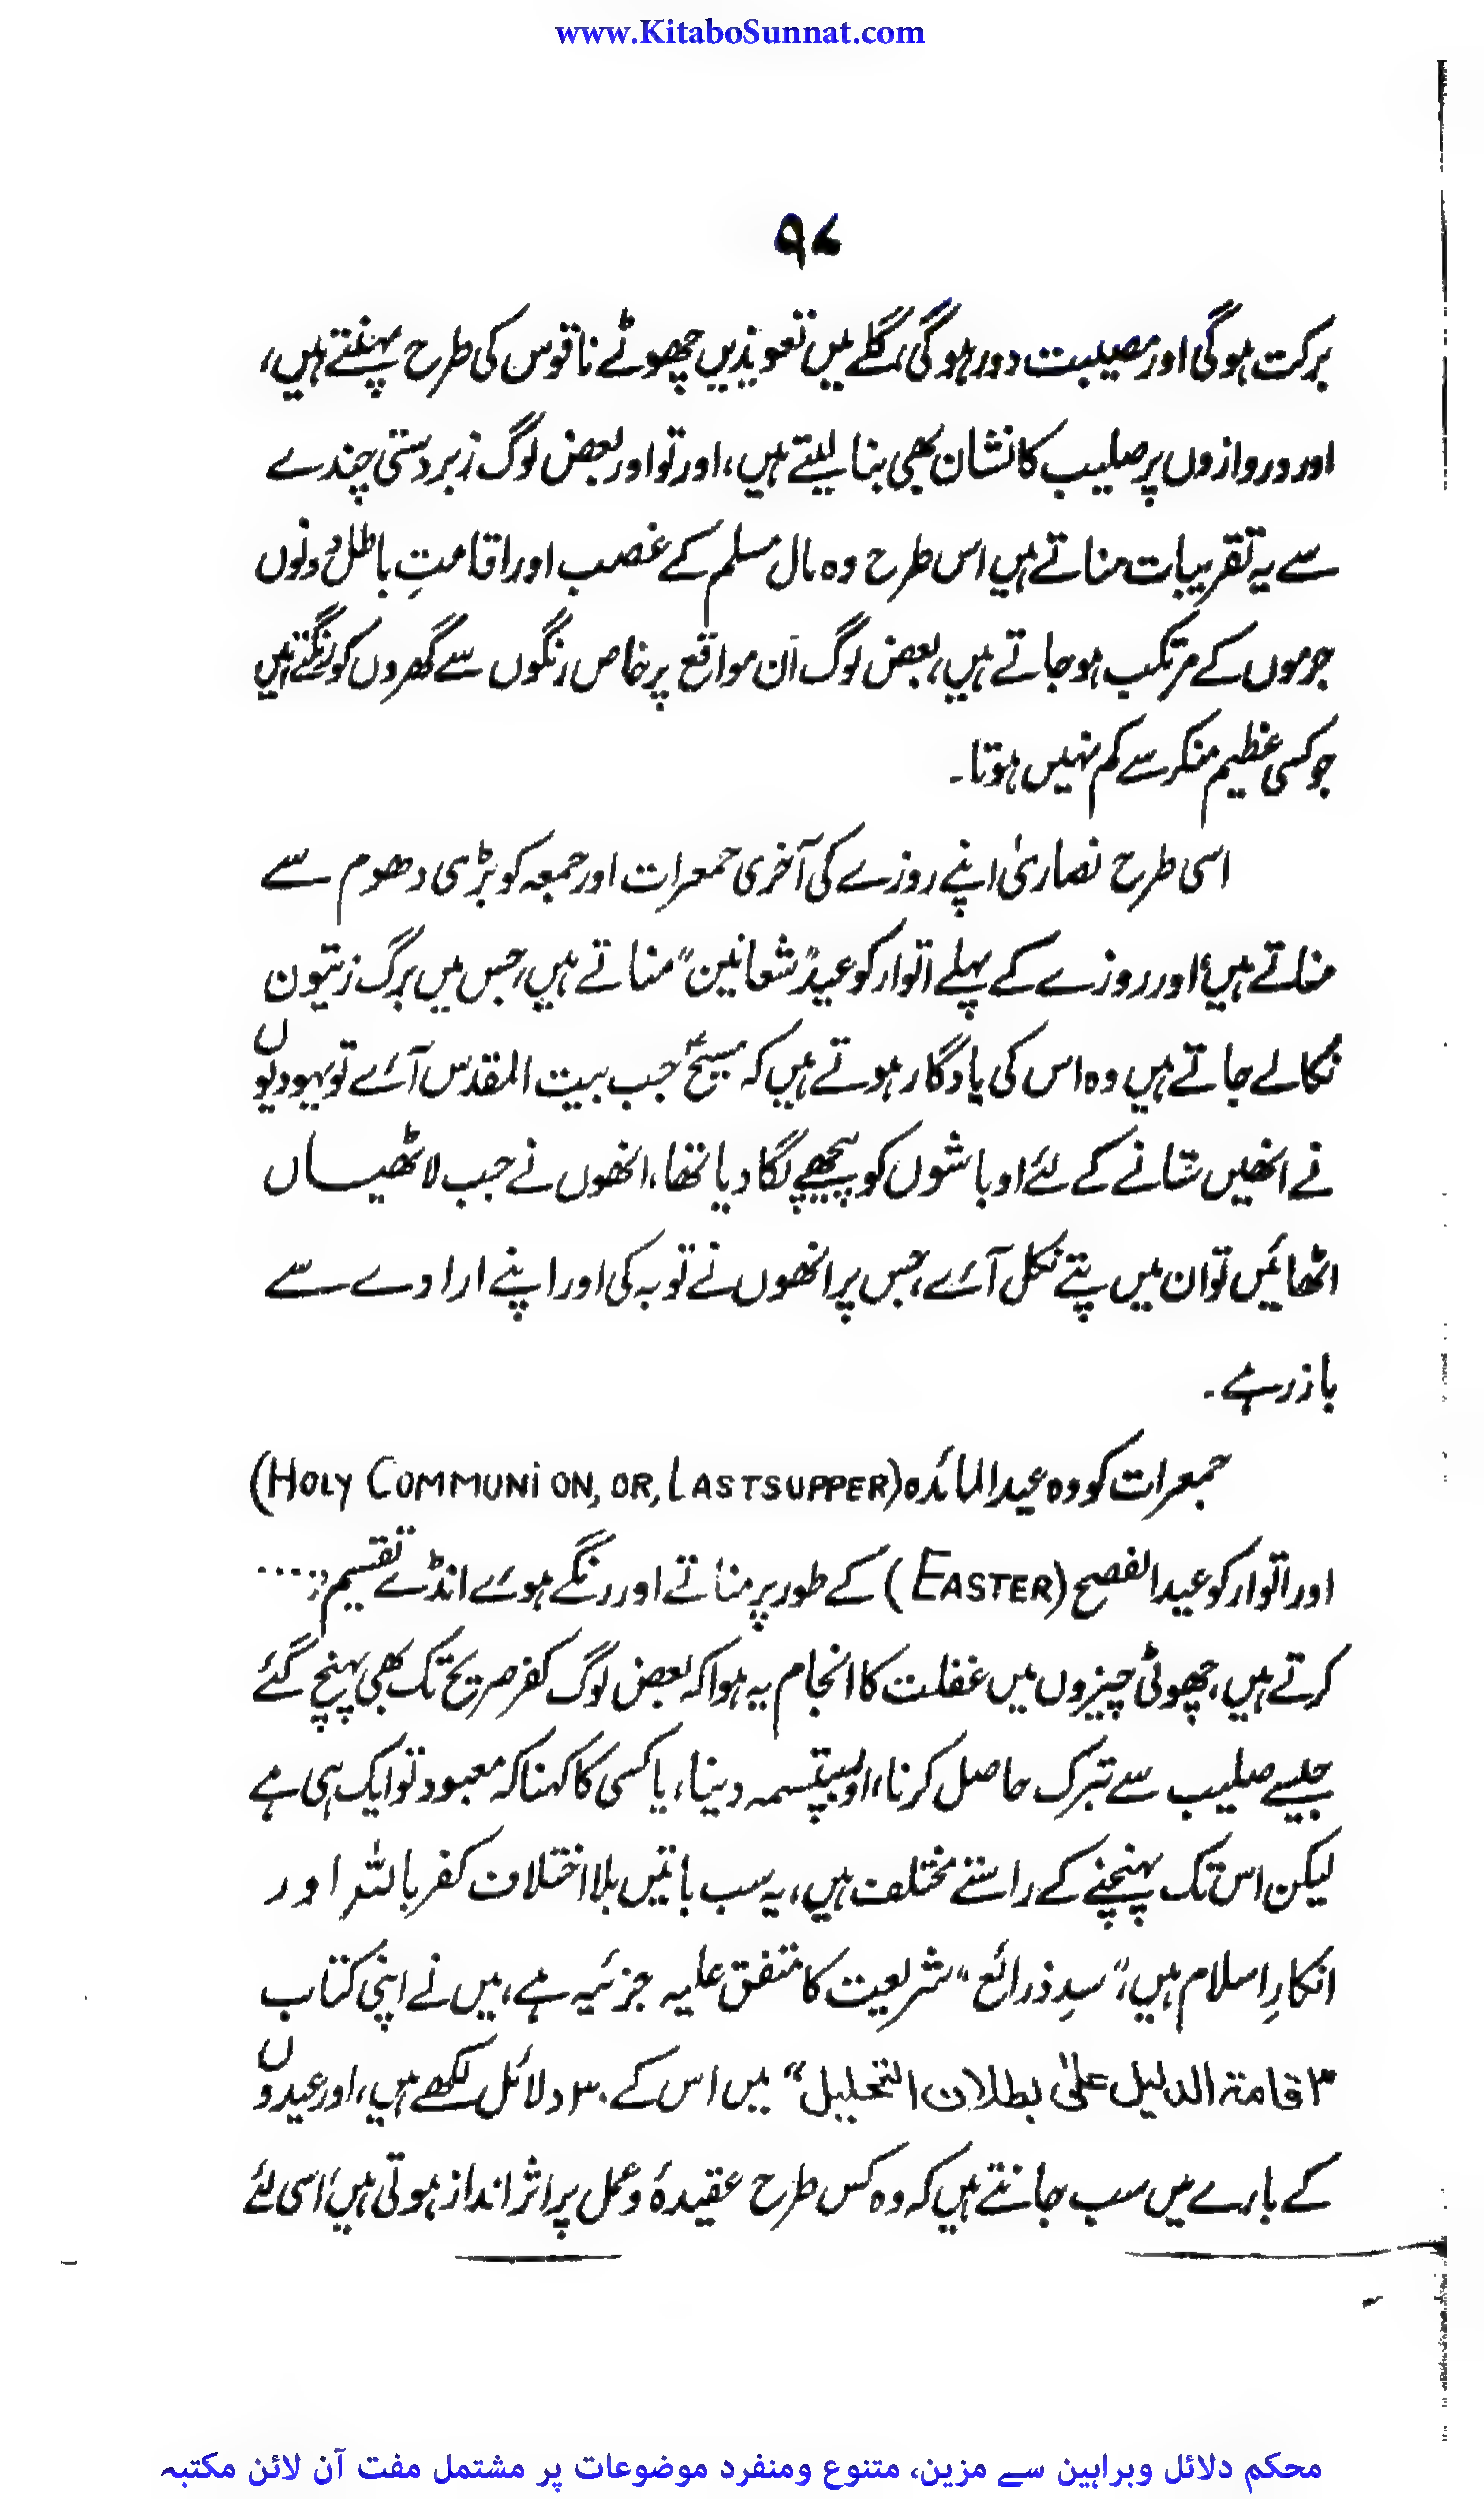 www.KitaboSunnat.com
۹۷
برکت ہوگی اور مصیبت دور ہوگی، گلے میں تعویذیں چھوٹے ناقوس کی طرح پہنتے ہیں،
اور دروازوں پر صلیب کا نشان بھی بنا لیتے ہیں، اور تو اور بعض لوگ زبردستی چندے
سے یہ تقریبات مناتے ہیں اس طرح وہ مال مسلم کے غصب اور اقامتِ باطل دونوں
جرموں کے مرتکب ہو جاتے ہیں، بعض لوگ ان مواقع پر خاص رنگوں سے گھروں کو رنگتے ہیں
جو کسی عظیم منکر سے کم نہیں ہوتا۔
اسی طرح نصاریٰ اپنے روزے کی آخری جمعرات اور جمعہ کو بڑی دھوم سے
مناتے ہیں اور روزے کے پہلے اتوار کو عید "شعانین" مناتے ہیں، جس میں برگ زیتون
نکالے جاتے ہیں وہ اس کی یادگار ہوتے ہیں کہ مسیحؑ جب بیت المقدس آئے تو یہودیوں
نے انھیں ستانے کے لئے اوباشوں کو پیچھے لگا دیا تھا، انھوں نے جب لاٹھیاں
اٹھائیں تو ان میں پتے نکل آئے، جس پر انھوں نے توبہ کی اور اپنے ارادے سے
باز رہے۔
جمعرات کو وہ عید المائدہ (HOLY COMMUNiON, OR, LASTSUPPER)
اور اتوار کو عید الفصح (EASTER) کے طور پر مناتے اور رنگے ہوئے انڈے تقسیم ....
کرتے ہیں، چھوٹی چیزوں میں غفلت کا انجام یہ ہوا کہ بعض لوگ کفر صریح تک بھی پہنچ گئے
جیسے صلیب سے تبرک حاصل کرنا، اور بپتسمہ دینا، یا کسی کا کہنا کہ معبود تو ایک ہی ہے
لیکن اس تک پہنچنے کے راستے مختلف ہیں، یہ سب باتیں بلا اختلاف کفر باللہ اور
انکارِ اسلام ہیں، "سدِ ذرائع" شریعت کا متفق علیہ جزئیہ ہے، میں نے اپنی کتاب
"اقامة الدلیل علیٰ بطلان التحلیل" میں اس کے ۳۰ دلائل لکھے ہیں، اور عیدوں
کے بارے میں سب جانتے ہیں کہ وہ کس طرح عقیدۂ و عمل پر اثر انداز ہوتی ہیں، اسی لئے
محکم دلائل وبراہین سے مزین، متنوع ومنفرد موضوعات پر مشتمل مفت آن لائن مکتبہ